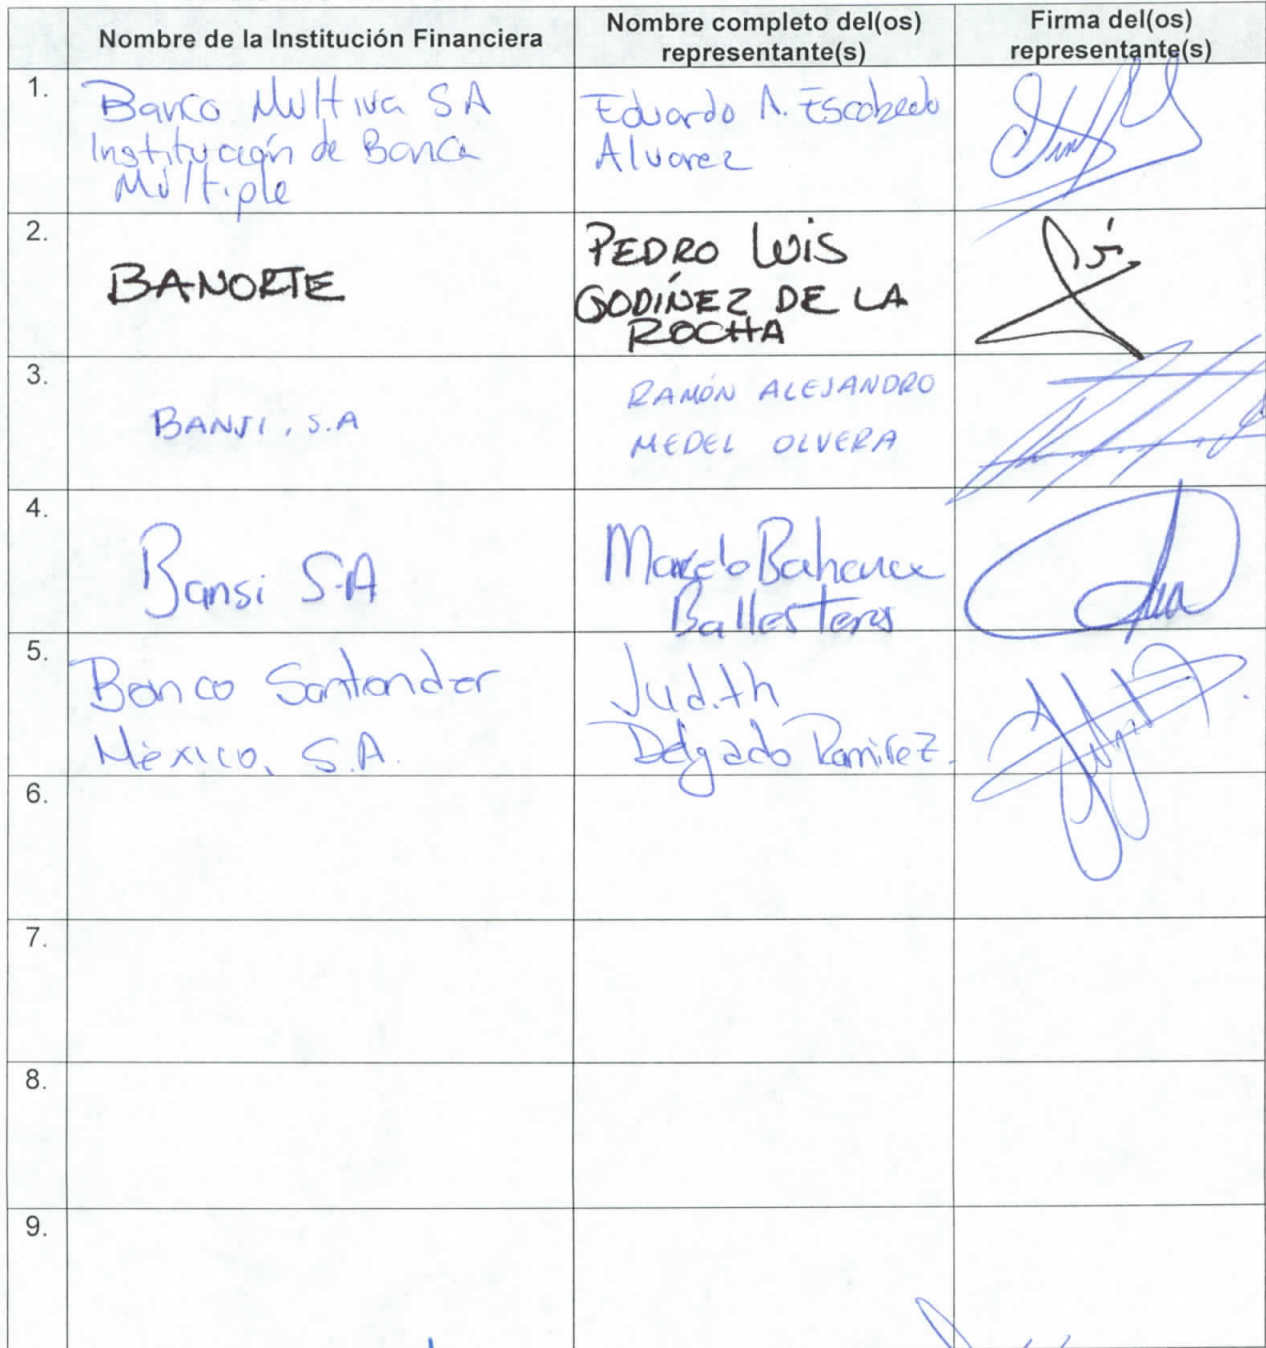 Nombre de la Institución Financiera
Nombre completo del(os)
representante(s)
Firma del(os)
representante(s)
1.
Banco Multiva SA
Institución de Banca
Múltiple
Eduardo A. Escobedo
Alvarez
2.
BANORTE
PEDRO LUIS
GODÍNEZ DE LA
ROCHA
3.
BANSI, S.A
RAMÓN ALEJANDRO
MEDEL OLVERA
4.
Bansi S.A
Marcelo Bahena
Ballesteros
5.
Banco Santander
México, S.A.
Judith
Delgado Ramirez.
6.
7.
8.
9.